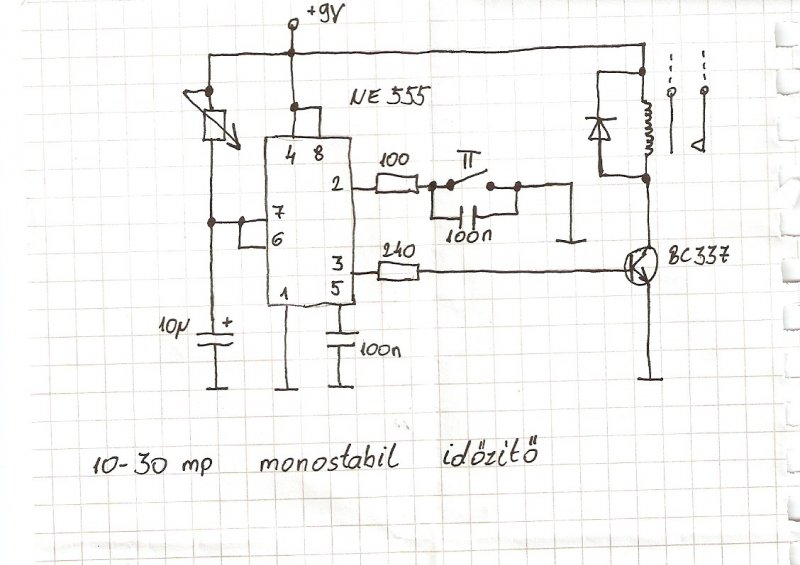 +9V
NE 555
4 8
100
π
2
7
6
100n
240
3
BC337
1
5
10µ
+
100n
10-30 mp monostabil időzítő